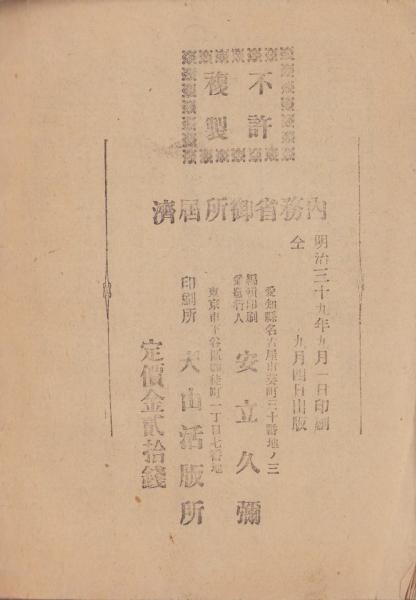 不許
複製
内務省御所届濟
明治三十九年九月一日印刷
仝 九月四日出版
愛知縣名古屋市湊町三十番地ノ三
編輯印刷
発行人
安立久彌
東京市下谷區御徒町一丁目七番地
印刷所 大山活版所
定價金貳拾錢